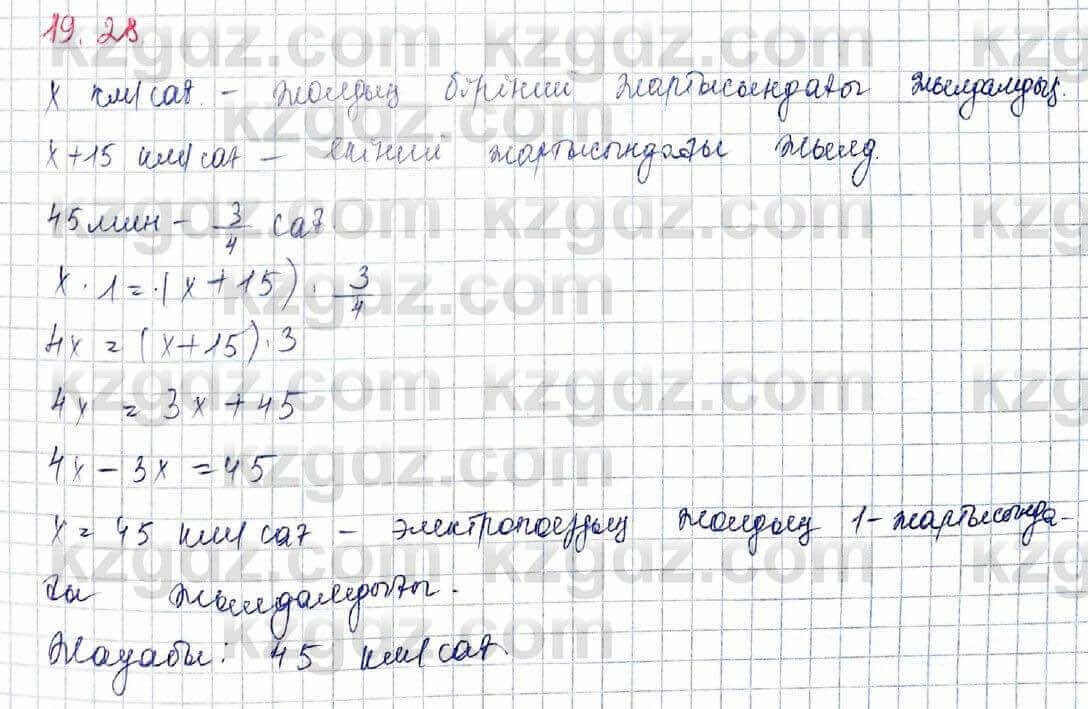 19. 28
x км/сағ. - жолдың бірінші жартысындағы жылдамдық.
x+15 км/сағ - екінші жартысындағы жылд.
45 мин - 3/4 сағ
x · 1 = (x + 15) · 3/4
4x = (x+15)·3
4x = 3x + 45
4x - 3x = 45
x = 45 км/сағ - электропоездың жолдың 1-жартысында-
ғы жылдамдығы.
Жауабы: 45 км/сағ.
kzgdz.com